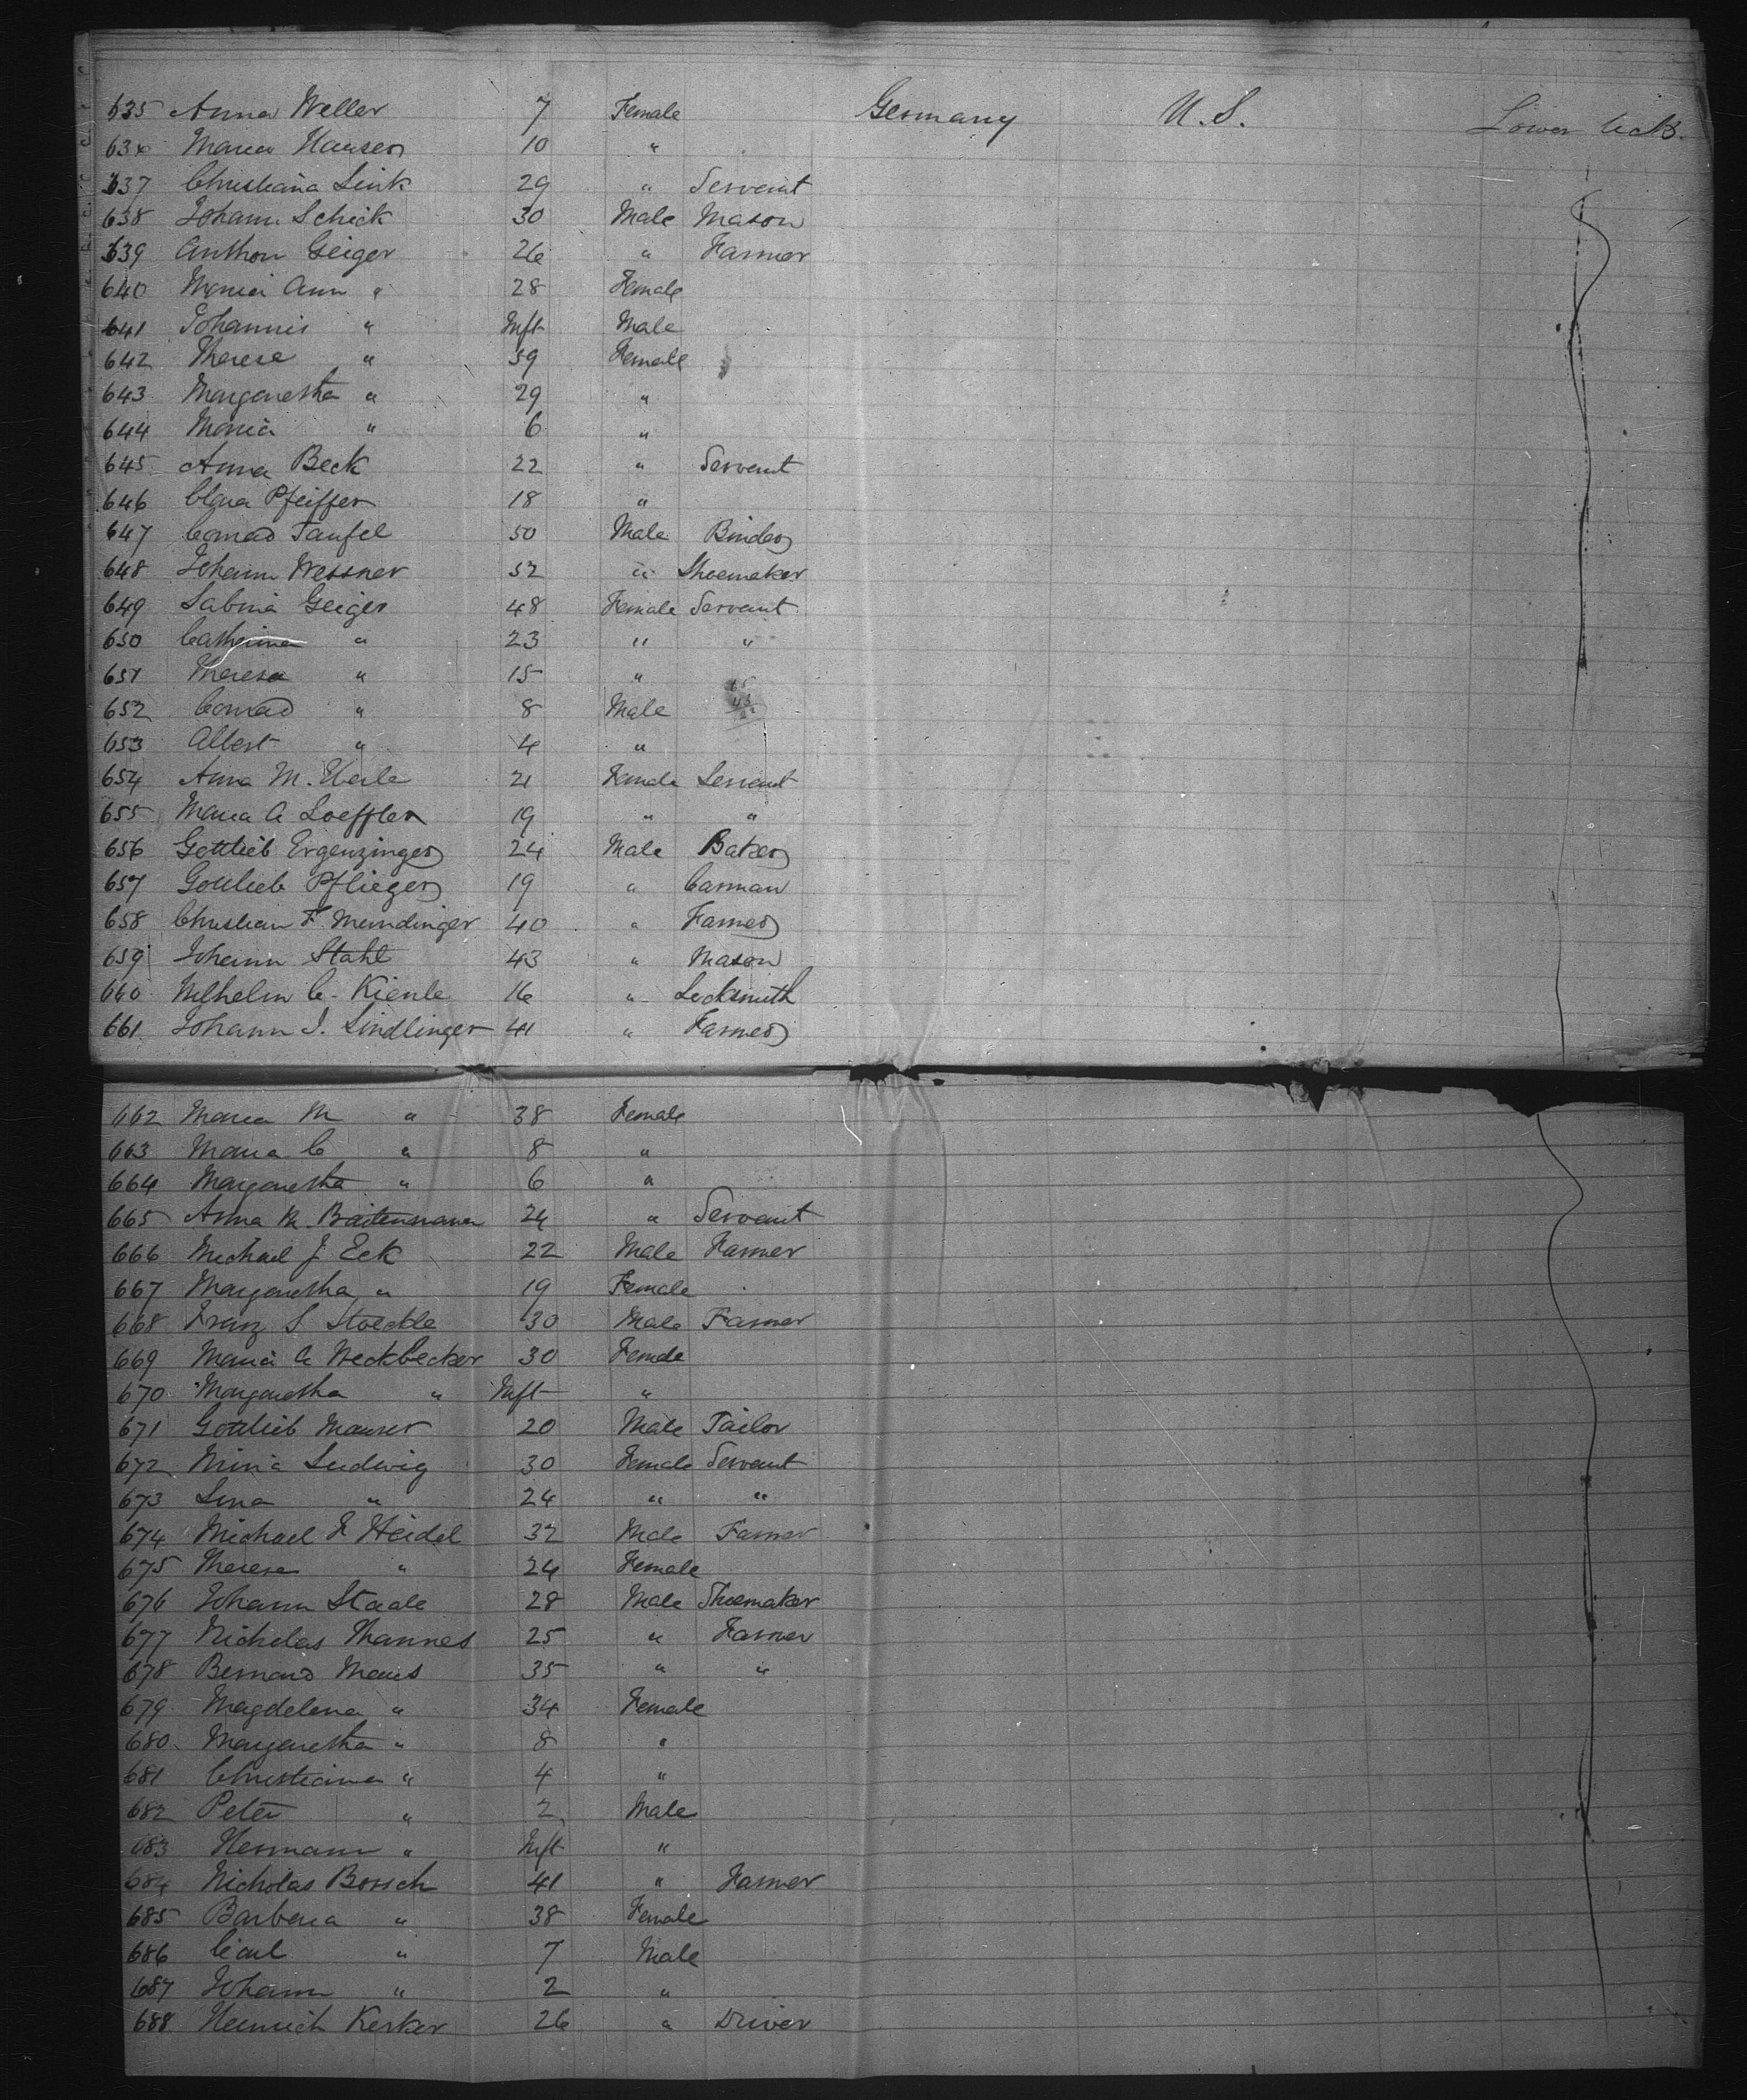 635 Anna Weller 7 Female Germany U.S. Lower deck.
636 Maria Hansen 10 "
637 Christiana Link 29 " Servant
638 Johann Schick 30 Male Mason
639 Anthon Geiger 26 " Farmer
640 Maria Ann " 28 Female
641 Johannis " Inft Male
642 Therese " 59 Female
643 Margaretha " 29 "
644 Maria " 6 "
645 Anna Beck 22 " Servant
646 Clara Pfeiffer 18 "
647 Conrad Taufel 50 Male Binder
648 Johann Wessner 52 " Shoemaker
649 Sabina Geiger 48 Female Servant
650 Catherina " 23 " "
651 Theresa " 15 "
652 Conrad " 8 Male
653 Albert " 4 "
654 Anna M. 21 Female Servant
655 Maria A Loeffler 19 " "
656 Gottlieb Ergenzinger 24 Male Baker
657 Gottlieb Pflieger 19 " Carman
658 Christian F Memdinger 40 " Farmer
659 Johann Stahl 43 " Mason
660 Wilhelm C. Kienle 16 " Locksmith
661 Johann J. Lindlinger 41 " Farmer
662 Maria M " 38 Female
663 Maria C " 8 "
664 Margaretha " 6 "
665 Anna M. Baitenmann 24 " Servant
666 Michael J Eck 22 Male Farmer
667 Margaretha " 19 Female
668 Franz S Stoeckle 30 Male Farmer
669 Maria A Weckbecker 30 Female
670 Margaretha " Inft "
671 Gottlieb Mauser 20 Male Tailor
672 Mina Ludwig 30 Female Servant
673 Lina " 24 " "
674 Michael F Heidel 32 Male Farmer
675 Therese " 24 Female
676 Johann Staale 28 Male Shoemaker
677 Nicholas Thannes 25 " Farmer
678 Bernard Maus 35 " "
679 Magdelena " 34 Female
680 Margaretha " 8 "
681 Christiana " 4 "
682 Peter " 2 Male
683 Hermann " Inft "
684 Nicholas Borsch 41 " Farmer
685 Barbera " 38 Female
686 Carl " 7 Male
687 Johann " 2 "
688 Heinrich Kerker 26 " Driver